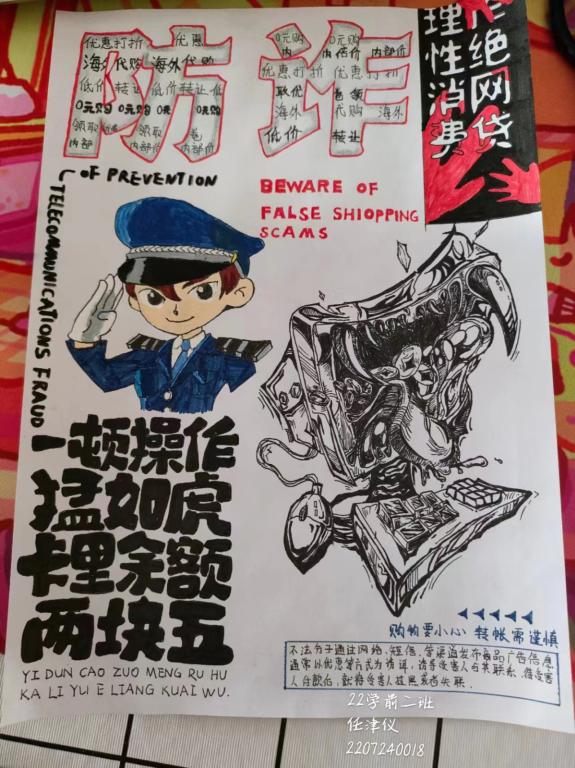 防诈
优惠打折 优惠
海外代购 海外代购
低价 转让 低价 转让 低
0元购 0元购 0元 0元购
领取 领取
内部 内部价 内部价
0元购 0元购
内 内部价 内部价
优惠打折 优惠打折
海外 代购 海外
低价 转让
拒绝网贷
理性消费
OF PREVENTION
TELECOMMUNICATIONS FRAUD
BEWARE OF
FALSE SHIOPPING
SCAMS
一顿操作
猛如虎
卡里余额
两块五
YI DUN CAO ZUO MENG RU HU
KA LI YU E LIANG KUAI WU.
购物要小心 转帐需谨慎
不法分子通过网络、短信、等渠道发布商品广告信息
通常以优惠等方式为诱饵，诱导受害人与其联系，待受害
人付款后，就将受害人拉黑或者失联.
22学前二班
任津仪
2207240018